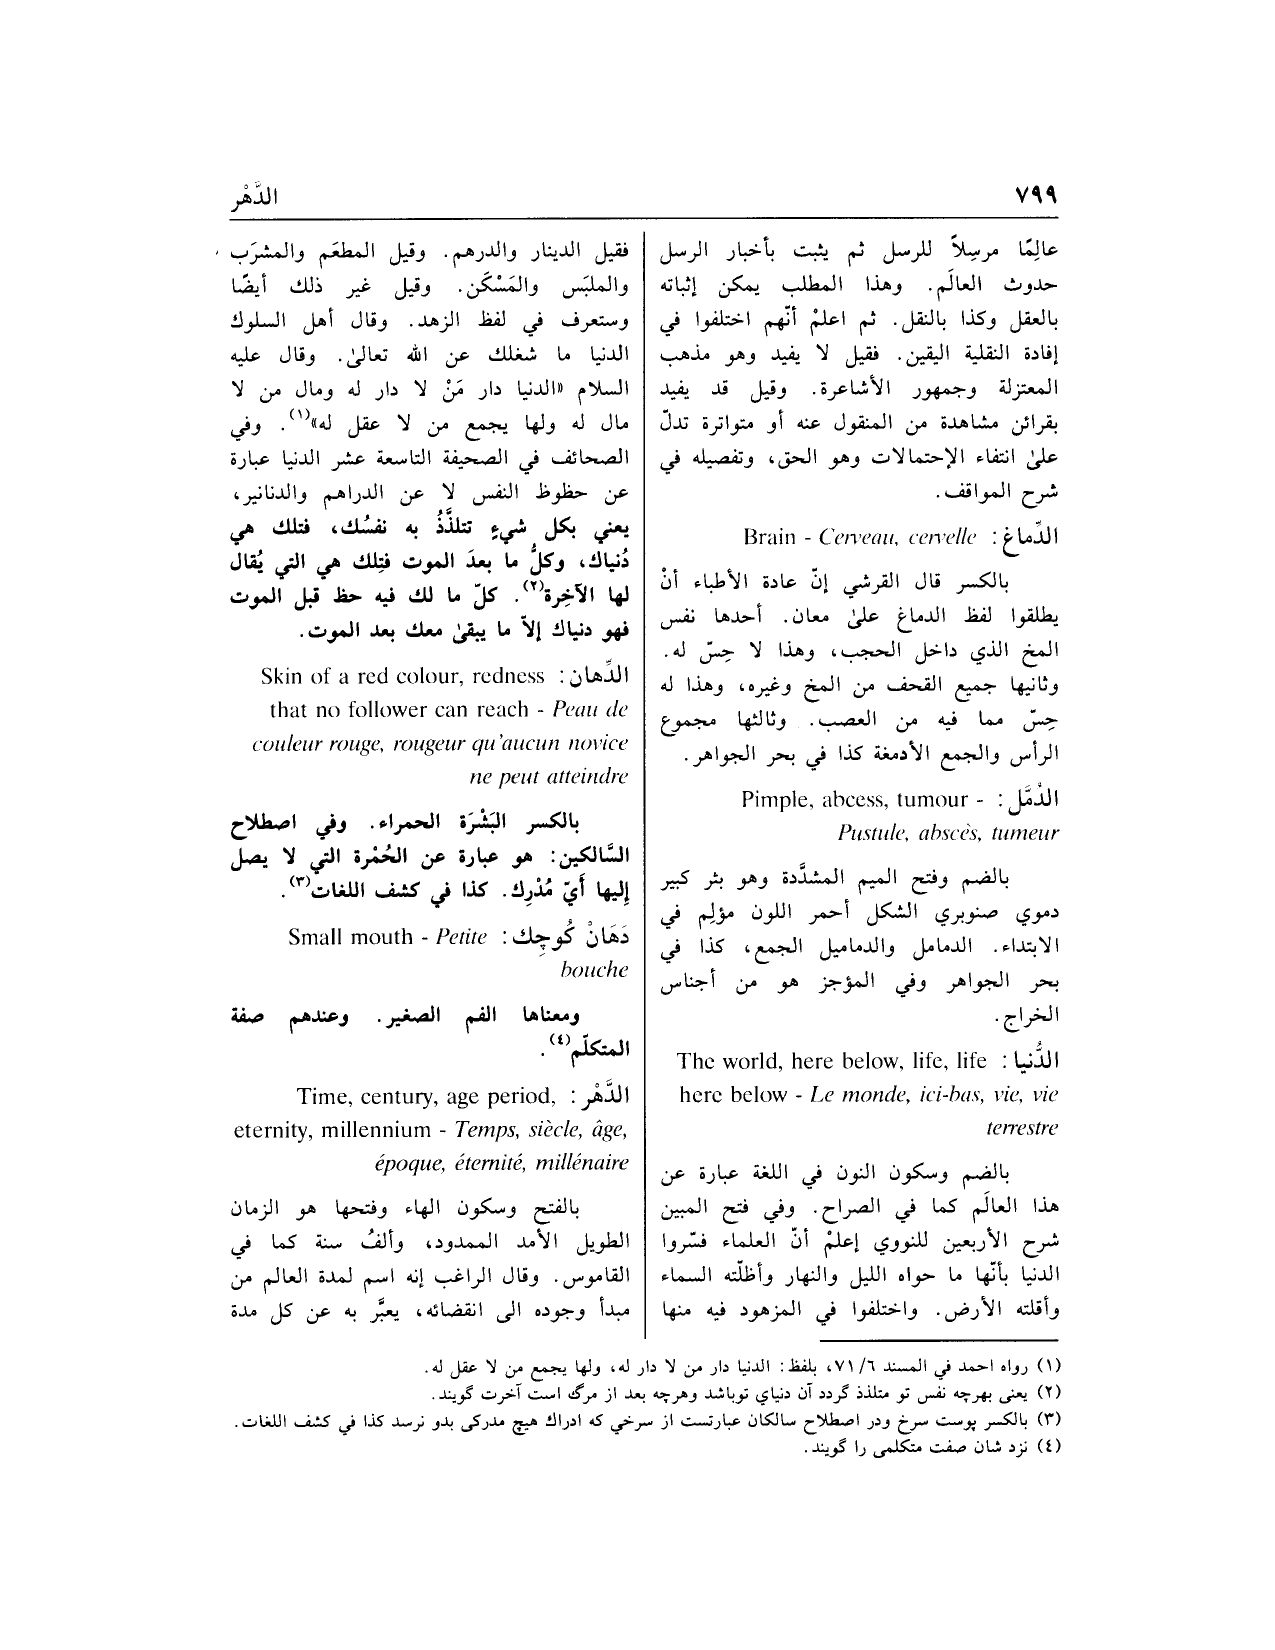 ٧٩٩
الدَّهْر
عالِمًا مرسِلاً للرسل ثم يثبت بأخبار الرسل
حدوث العالَم. وهذا المطلب يمكن إثباته
بالعقل وكذا بالنقل. ثم اعلمْ أنّهم اختلفوا في
إفادة النقلية اليقين. فقيل لا يفيد وهو مذهب
المعتزلة وجمهور الأشاعرة. وقيل قد يفيد
بقرائن مشاهدة من المنقول عنه أو متواترة تدلّ
علىٰ انتفاء الإحتمالات وهو الحق، وتفصيله في
شرح المواقف.
الدِّماغ: Brain - Cerveau, cervelle
بالكسر قال القرشي إنّ عادة الأطباء أنْ
يطلقوا لفظ الدماغ علىٰ معان. أحدها نفس
المخ الذي داخل الحجب، وهذا لا حِسّ له.
وثانيها جميع القحف من المخ وغيره، وهذا له
حِسّ مما فيه من العصب. وثالثها مجموع
الرأس والجمع الأدمغة كذا في بحر الجواهر.
الدُّمَّل: Pimple, abcess, tumour -
Pustule, abscès, tumeur
بالضم وفتح الميم المشدَّدة وهو بثر كبير
دموي صنوبري الشكل أحمر اللون مؤلِم في
الابتداء. الدمامل والدماميل الجمع، كذا في
بحر الجواهر وفي المؤجز هو من أجناس
الخراج.
الدُّنيا: The world, here below, life, life
here below - Le monde, ici-bas, vie, vie
terrestre
بالضم وسكون النون في اللغة عبارة عن
هذا العالَم كما في الصراح. وفي فتح المبين
شرح الأربعين للنووي إعلمْ أنّ العلماء فسّروا
الدنيا بأنّها ما حواه الليل والنهار وأظلّته السماء
وأقلته الأرض. واختلفوا في المزهود فيه منها
فقيل الدينار والدرهم. وقيل المطعَم والمشرَب
والملبَس والمَسْكَن. وقيل غير ذلك أيضًا
وستعرف في لفظ الزهد. وقال أهل السلوك
الدنيا ما شغلك عن الله تعالىٰ. وقال عليه
السلام «الدنيا دار مَنْ لا دار له ومال من لا
مال له ولها يجمع من لا عقل له»(١). وفي
الصحائف في الصحيفة التاسعة عشر الدنيا عبارة
عن حظوظ النفس لا عن الدراهم والدنانير،
يعني بكل شيءٍ تتلذَّذُ به نفسُك، فتلك هي
دُنياك، وكلُّ ما بعدَ الموت فتِلك هي التي يُقال
لها الآخِرة(٢). كلّ ما لك فيه حظ قبل الموت
فهو دنياك إلاّ ما يبقىٰ معك بعد الموت.
الدِّهان: Skin of a red colour, redness
that no follower can reach - Peau de
couleur rouge, rougeur qu'aucun novice
ne peut atteindre
بالكسر البَشْرَة الحمراء. وفي اصطلاح
السَّالكين: هو عبارة عن الحُمْرة التي لا يصل
إليها أَيّ مُدْرِك. كذا في كشف اللغات(٣).
دَهَانْ كُوچِك: Small mouth - Petite
bouche
ومعناها الفم الصغير. وعندهم صفة
المتكلّم(٤).
الدَّهْر: Time, century, age period,
eternity, millennium - Temps, siècle, âge,
époque, éternité, millénaire
بالفتح وسكون الهاء وفتحها هو الزمان
الطويل الأمد الممدود، وألفُ سنة كما في
القاموس. وقال الراغب إنه اسم لمدة العالم من
مبدأ وجوده الى انقضائه، يعبَّر به عن كل مدة
(١) رواه احمد في المسند ٦/ ٧١، بلفظ: الدنيا دار من لا دار له، ولها يجمع من لا عقل له.
(٢) يعنى بهرچه نفس تو متلذذ گردد آن دنياي توباشد وهرچه بعد از مرگ است آخرت گويند.
(٣) بالكسر پوست سرخ ودر اصطلاح سالكان عبارتست از سرخي كه ادراك هيچ مدركى بدو نرسد كذا في كشف اللغات.
(٤) نزد شان صفت متكلمى را گويند.